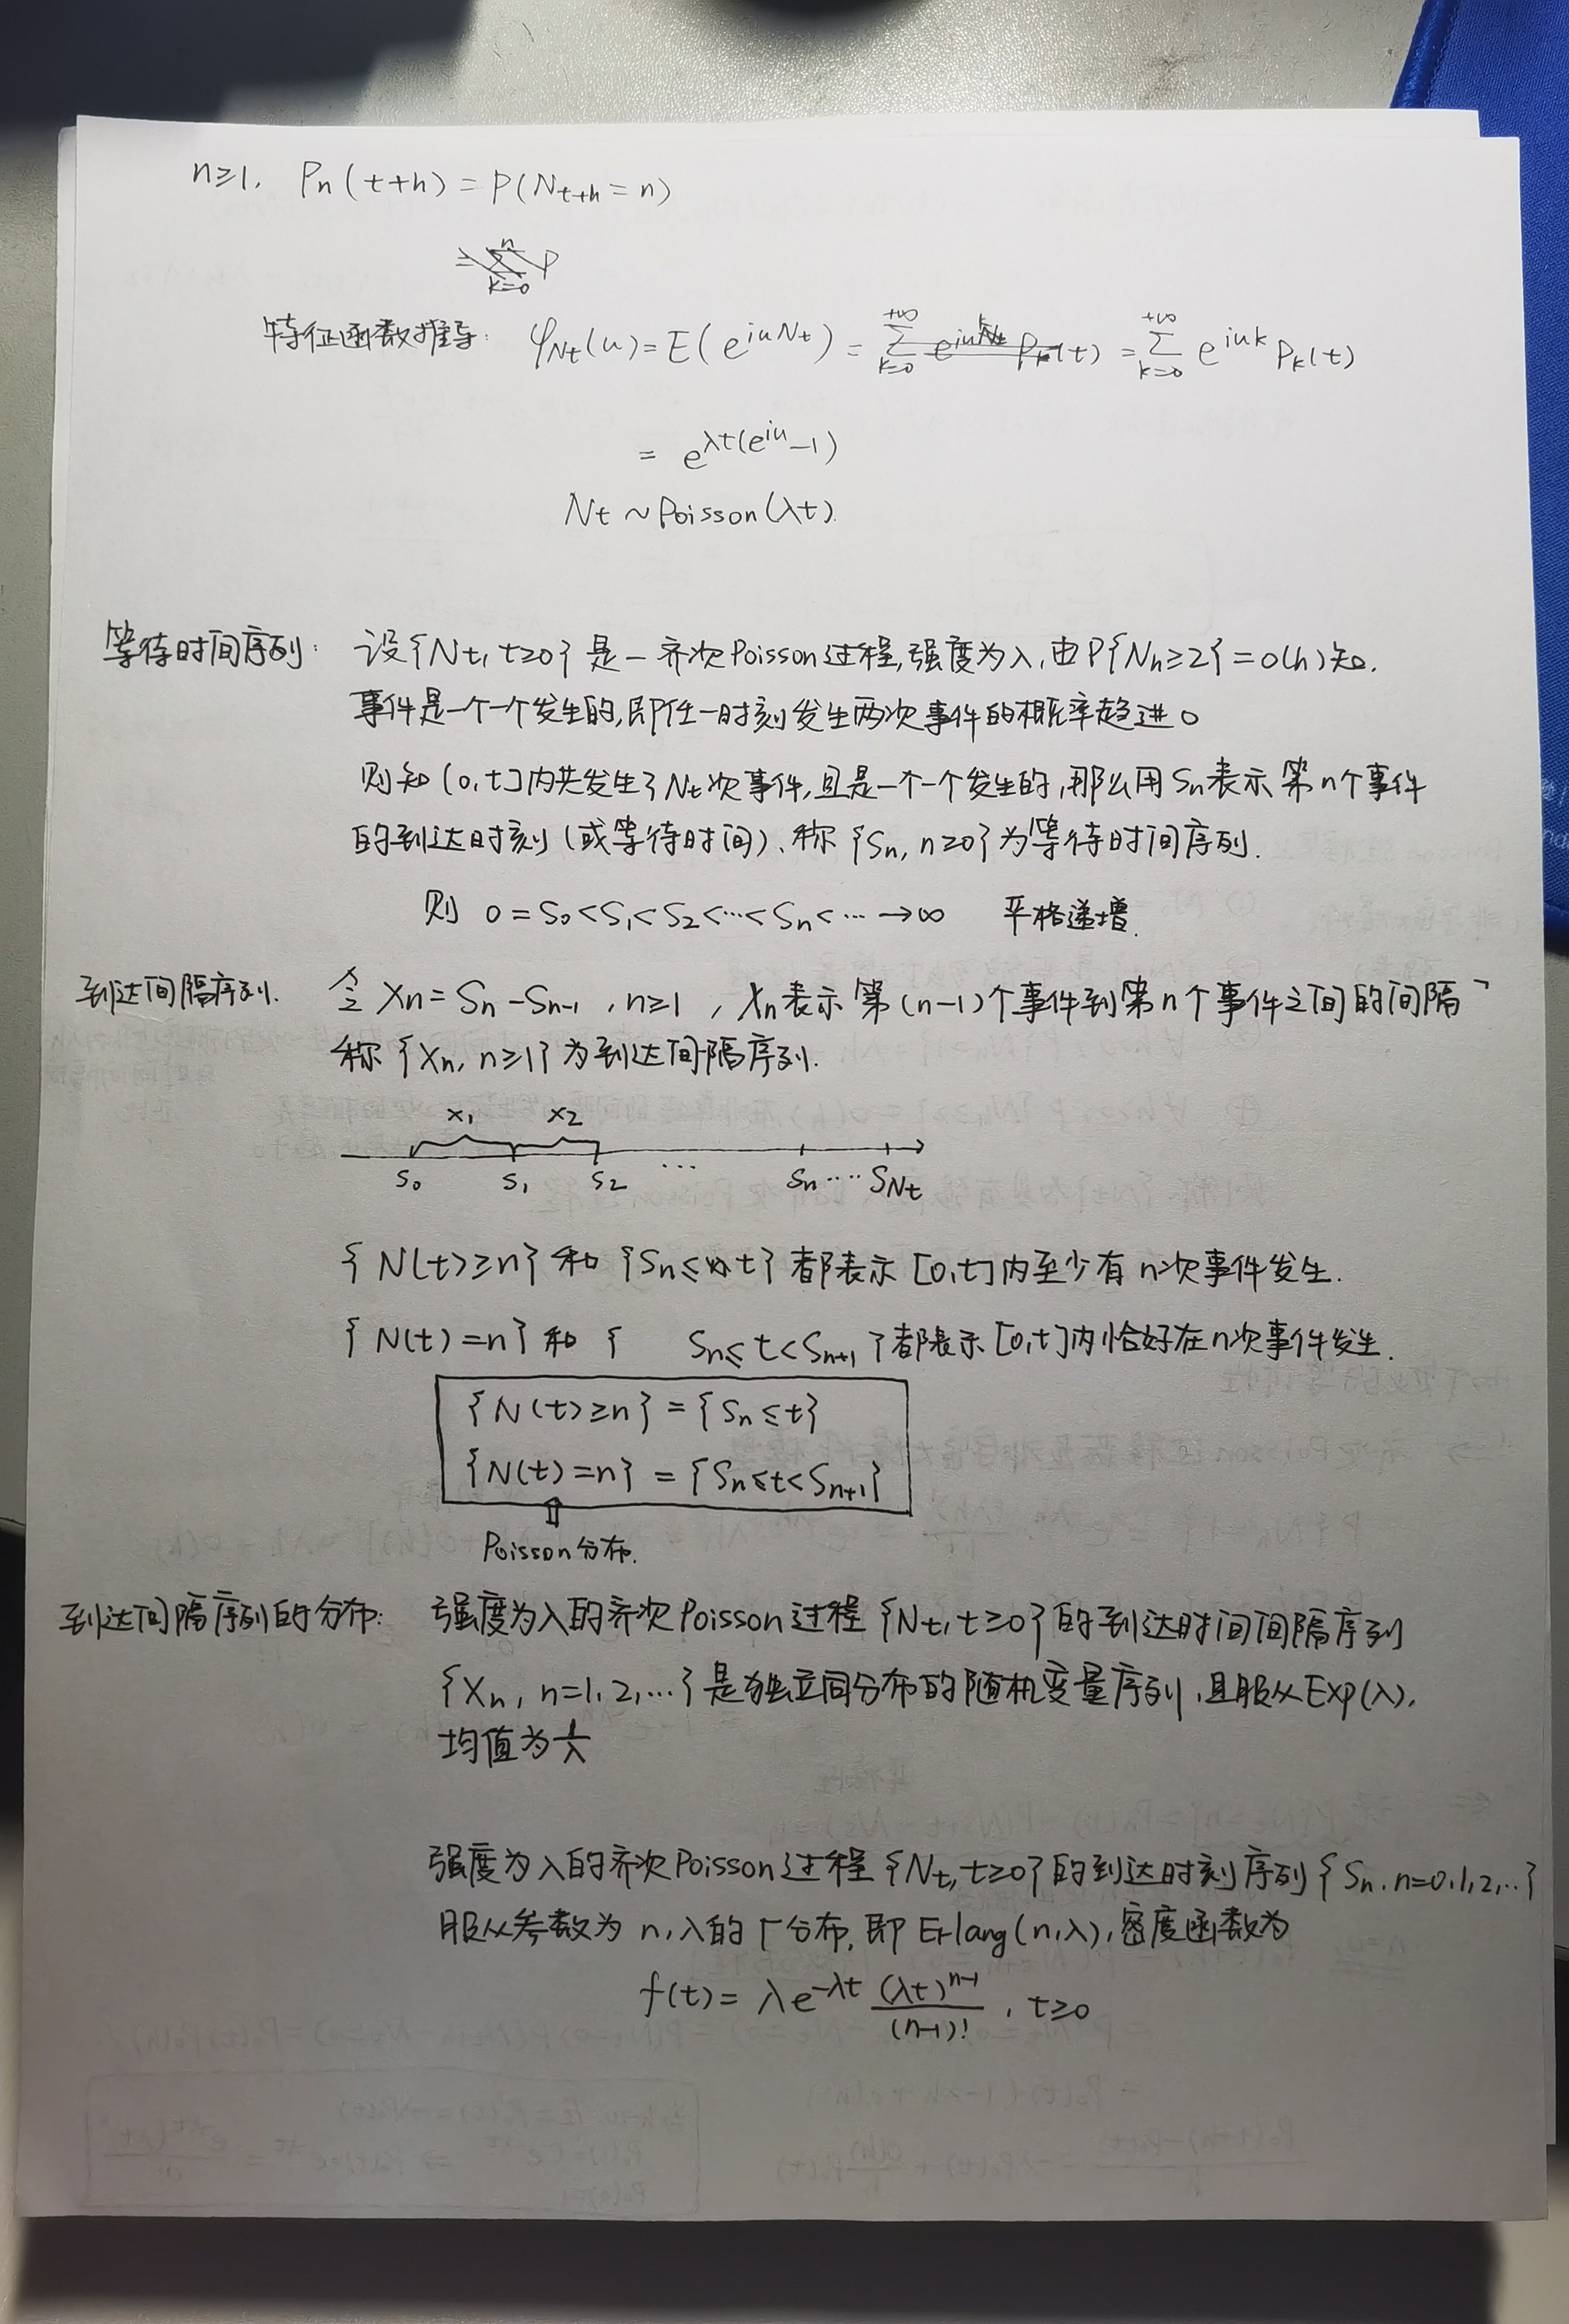 n≥1, Pn(t+h) = P(N_{t+h} = n)
特征函数推导: φ_{Nt}(u) = E(e^{iuNt}) = Σ_{k=0}^{+∞} e^{iuk} P_k(t) = Σ_{k=0}^{+∞} e^{iuk} P_k(t)
= e^{λt(e^{iu}-1)}
Nt ~ Poisson(λt).
等待时间序列: 设{Nt, t≥0}是一齐次Poisson过程,强度为λ,由P{N_h≥2}=o(h)知.
事件是一个一个发生的,即任一时刻发生两次事件的概率趋进0
则知(0,t]内共发生了Nt次事件,且是一个一个发生的,那么用Sn表示第n个事件
的到达时刻(或等待时间),称{Sn, n≥0}为等待时间序列.
则 0=S₀<S₁<S₂<…<Sn<…→∞ 严格递增.
到达间隔序列. 令 Xn = Sn - S_{n-1}, n≥1, Xn表示第(n-1)个事件到第n个事件之间的间隔
称{Xn, n≥1}为到达间隔序列.
X₁ X₂
S₀ S₁ S₂ … Sn …. S_{Nt}
{N(t)≥n}和{Sn≤t}都表示[0,t]内至少有n次事件发生.
{N(t)=n}和{ Sn≤t<S_{n+1}}都表示[0,t]内恰好在n次事件发生.
{N(t)≥n} = {Sn≤t}
{N(t)=n} = {Sn≤t<S_{n+1}}
⇑
Poisson分布.
到达间隔序列的分布: 强度为λ的齐次Poisson过程{Nt, t≥0}的到达时间间隔序列
{Xn, n=1,2,…}是独立同分布的随机变量序列,且服从Exp(λ),
均值为1/λ
强度为λ的齐次Poisson过程{Nt, t≥0}的到达时刻序列{Sn, n=0,1,2,…}
服从参数为n,λ的Γ分布,即Erlang(n,λ),密度函数为
f(t) = λe^{-λt} (λt)^{n-1}/(n-1)! , t≥0